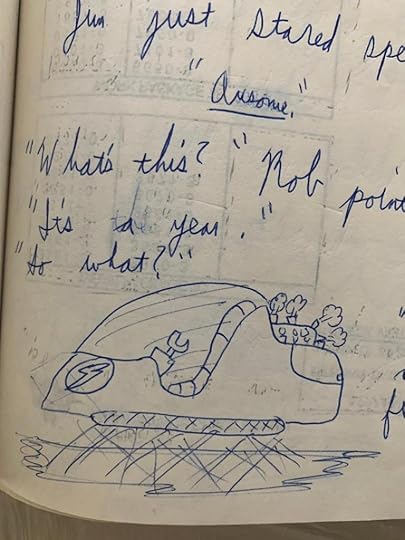 Jim just stared spe
"Ausome."
"What's this?" Rob point
"It's the year."
"So what?"